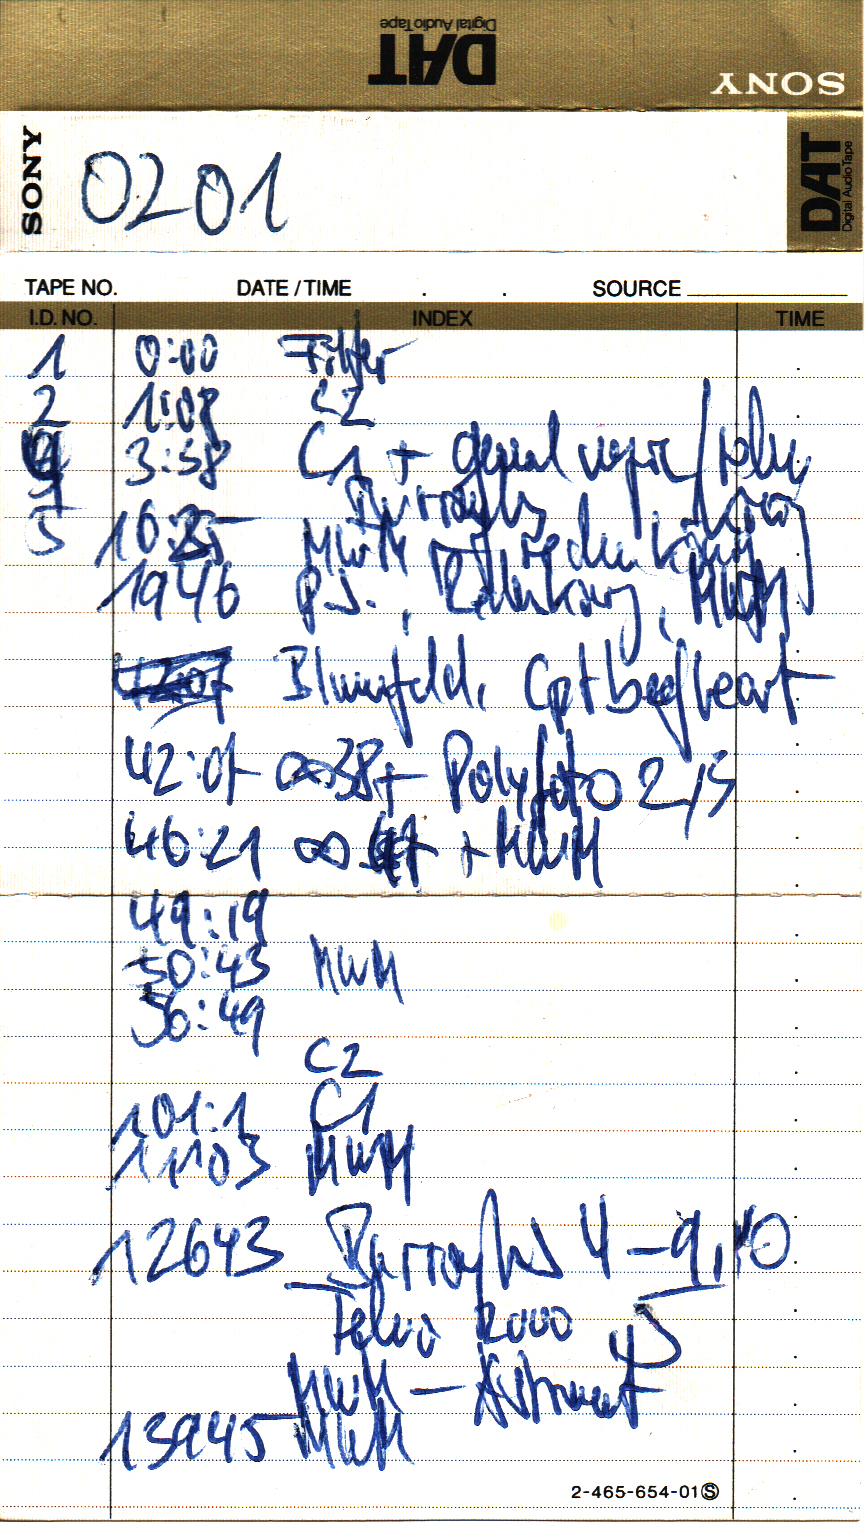 DAT
Digital Audio Tape
SONY
SONY
0201
DAT
Digital Audio Tape
TAPE NO. DATE / TIME . . SOURCE
I.D. NO. INDEX TIME
1 0:00 Filter
2 1:08 C2
3:58 C1 +
Burroughs
5 10:35 MWM
1946 P.J. , , MWM
Blumfeld, Cpt beefheart
42:07 ∞38+ Polyfoto 2/3
46:21 ∞ + MWM
49:19
50:43 MWM
56:49
C2
101:1 C1
11103 MWM
12643 Burroughs 4-9,10
2000
MWM -
13945 MWM
2-465-654-01Ⓢ